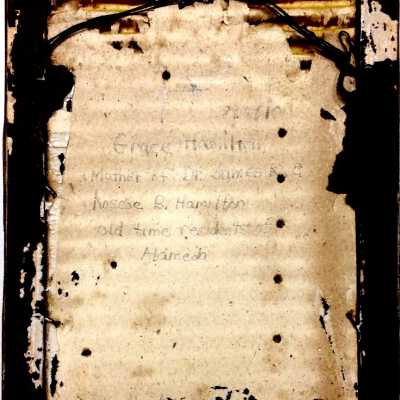 Grace Hamilton
Mother of Dr. James R. &
Roscoe B. Hamilton
old time residents of